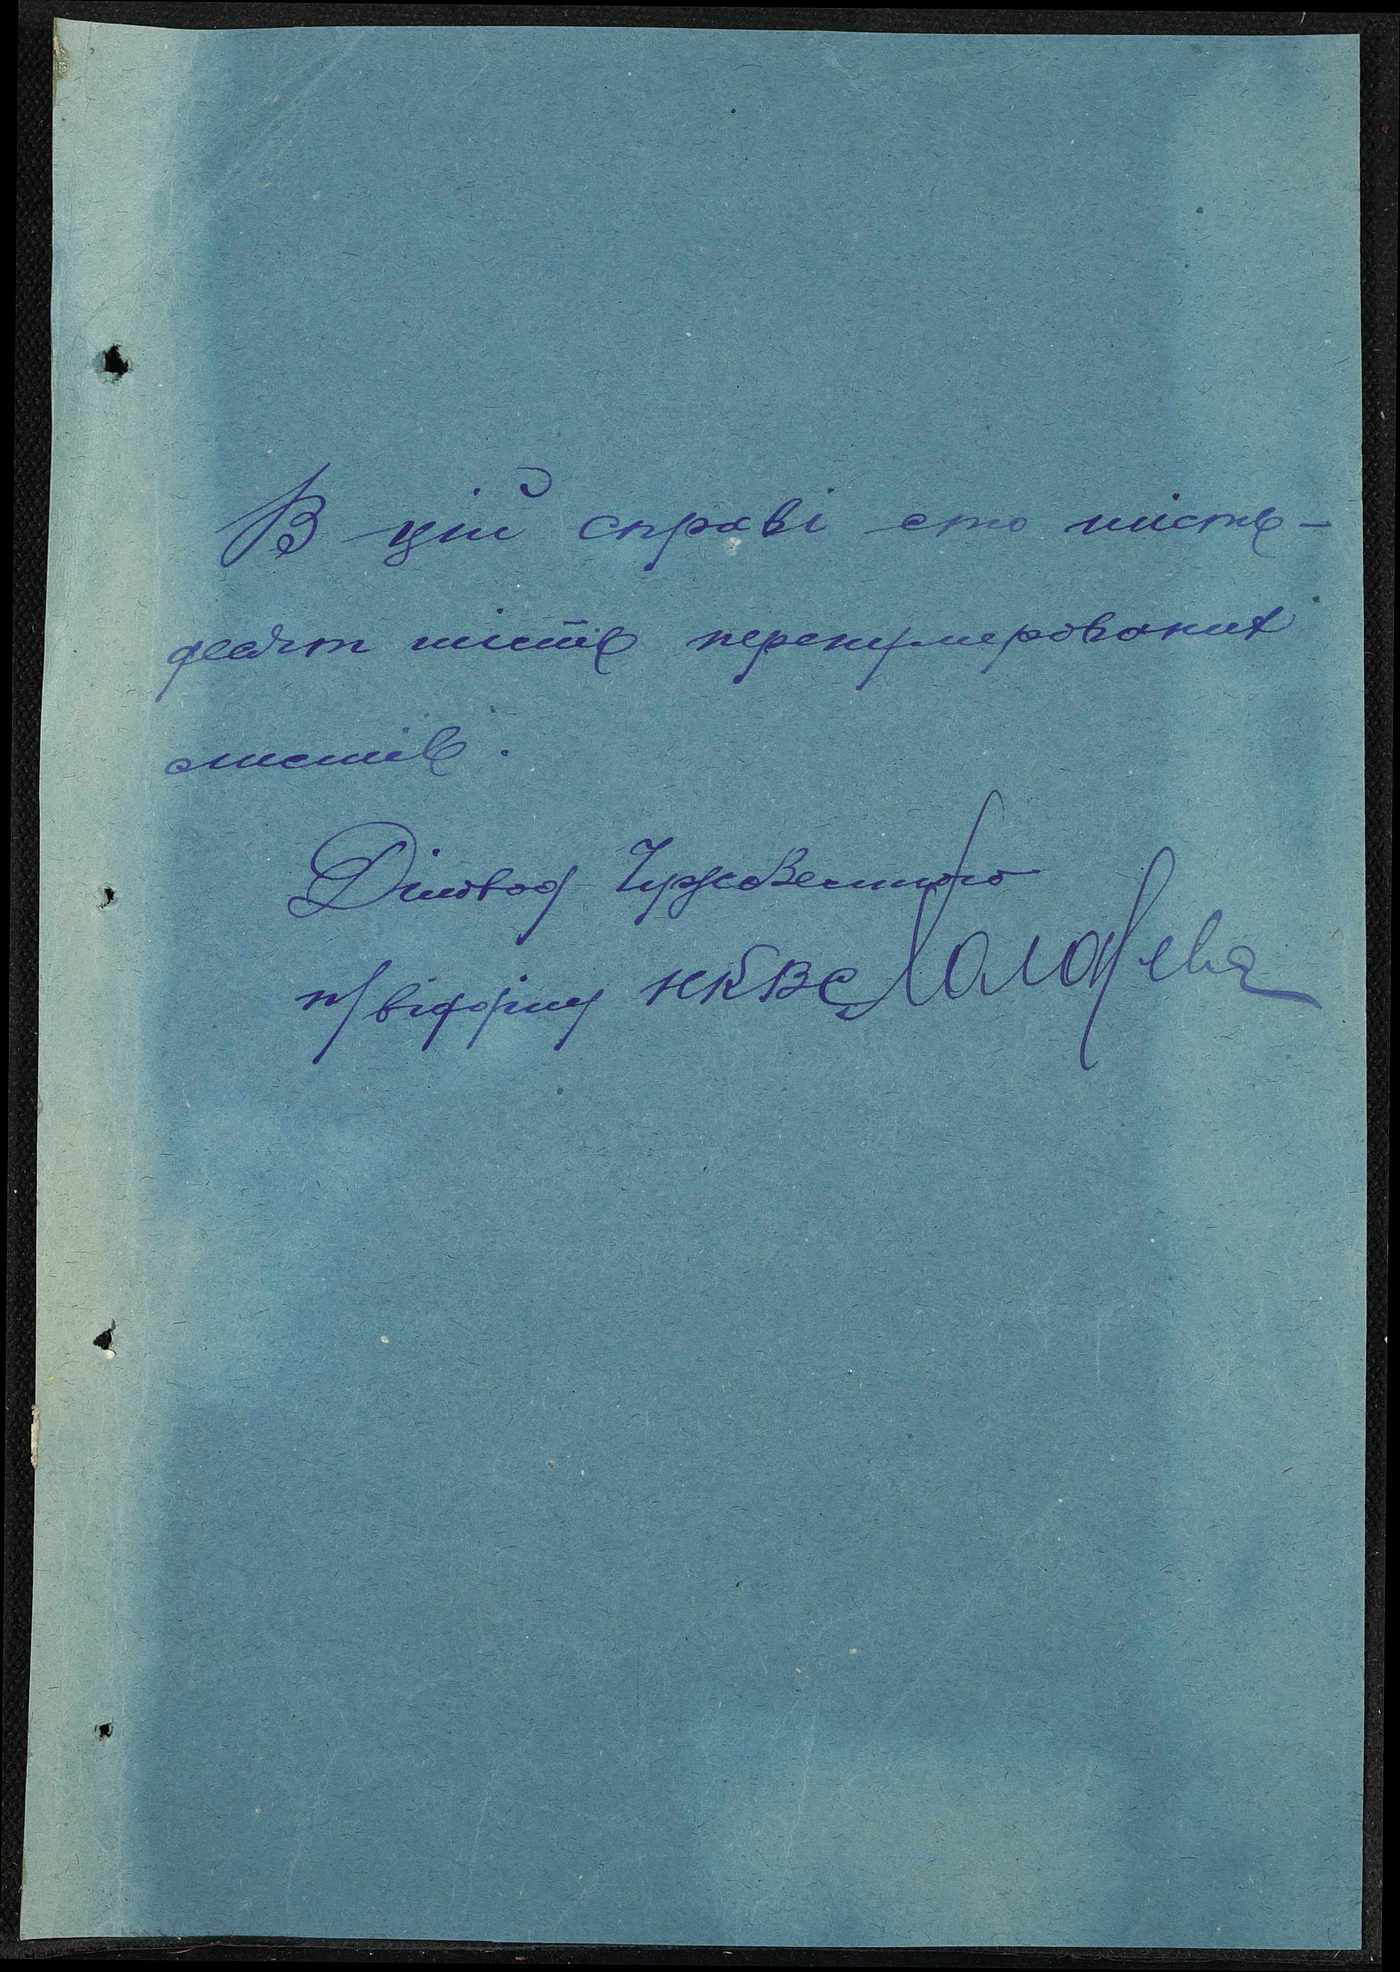 В цій справі сто шістьˮ-
десят шість перенумерованих
листів.
Діловод Червоного
п/відділу НКВС